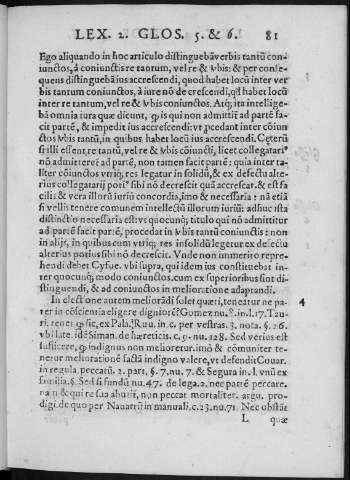 LEX. 2. GLOS. 5. & 6. 81
Ego aliquando in hoc articulo distinguebã verbis tantũ con-
iunctos, à coniunctis re tantum, vel re & vbis: & per conse-
quens distinguebã ius accrescendi, quod habet locũ inter ver
bis tantum coniunctos, à iure nõ de crescendi, qđ habet locũ
inter re tantum, vel re & vbis coniunctos. Atq; ita intellige-
bã omnia iura quæ dicunt, ꝙ is qui non admittit ad partē fa-
cit partē, & impedit ius accrescendi: vt ꝓcedant inter cōiun
ctos vbis tantũ, in quibus habet locũ ius accrescendi. Cęterũ
si illi essent re tantũ, vel re & vbis cōiuncti, licet collegatariꝰ
nõ admitteret ad partē, non tamen facit partē: quia inter ta-
liter cōiunctos vtriq; res legatur in solidũ, & ex defectu alte-
rius collegatarij potiꝰ sibi nõ decrescit quã accrescat. & est fa
cilis: & vera illorũ iuriũ concordia, imo & necessaria: nã etiã
si vellis tenere comunem intellectũ illorum iuriũ: adhuc ista
distinctio necessaria est: vt quocunq; titulo qui nõ admittitur
ad partē facit partē, procedat in vbis tantũ coniunctis: non
in alijs, in quibus cum vtriq; res insolidũ legetur ex defectu
alterius potius sibi nõ decrescit. Vnde non immerito repre-
hendi debet Cyfue. vbi supra, qui idem ius constituebat in-
ter quocunq; modo coniunctos. cum ex superioribus sint di-
stinguendi, & ad coniunctos in melioratione adaptandi.
In electione autem meliorãdi solet quæri, teneatur ne pa- 4
ter in cōsciētia eligere digniorē? Gomez nu. 9. in. l. 17. Tau-
ri. tenet ꝙ sic, ex Pala. Ruu. in. c. per vestras. 3. nota. §. 26.
vbi late. idē Siman. de hæreticis. c. 9. nu. 128. Sed verius est
sufficere, ꝙ indignus non melioretur. imõ & cōmuniter te-
netur meliorationē factã indigno valere, vt defendit Couar.
in regula. peccatũ. 2. part. §. 7. nu. 7. & Segura in. l. vnũ ex
familia. §. Sed si fundũ nu. 47. de lega. 2. nec partē peccare.
nam & qui re sua abutit̃, non peccat mortaliter. argu. pro-
digi. de quo per Nauarrũ in manuali. c. 23. nu. 71. Nec obstãt
L quæ